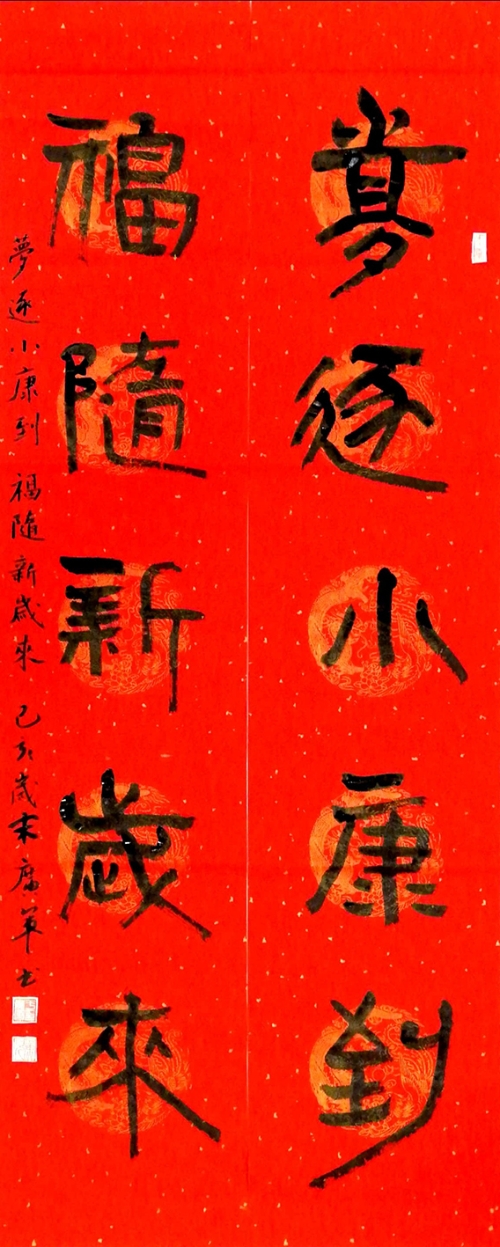 夢逐小康到
福隨新歲來
夢逐小康到 福隨新歲來 己亥歲末廣軍书